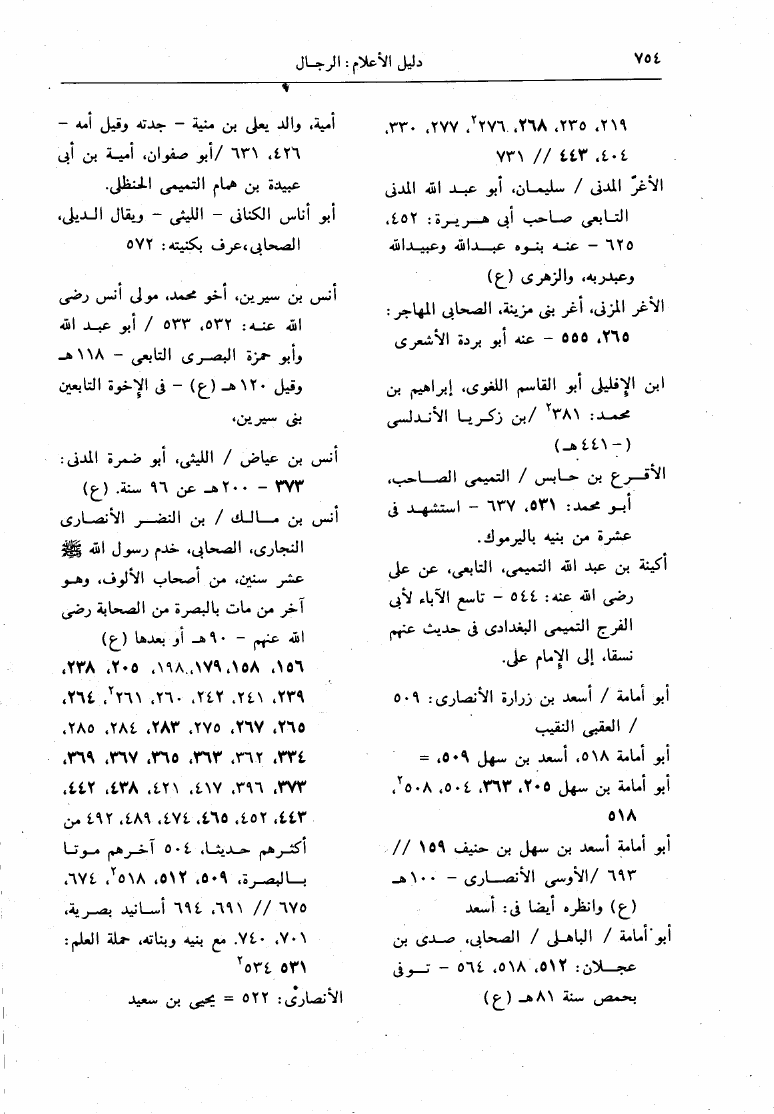 ٧٥٤
دليل الأعلام : الرجال
٢١٩، ٢٣٥، ٢٦٨، ٢٧٦٢، ٢٧٧، ٣٣٠،
٤٠٤، ٤٤٣ // ٧٣١
الأغرّ المدنى / سليمان، أبو عبد الله المدنى
التابعى صاحب أبى هريرة : ٤٥٢،
٦٢٥ – عنه بنوه عبدالله وعبيدالله
وعبدربه، والزهرى (ع)
الأغر المزنى، أغر بنى مزينة، الصحابى المهاجر :
٢٦٥، ٥٥٥ – عنه أبو بردة الأشعرى
ابن الإفليلى أبو القاسم اللغوى، إبراهيم بن
محمد : ٣٨١٢ /بن زكريا الأندلسى
(–٤٤١هـ)
الأقرع بن حابس / التميمى الصاحب،
أبو محمد : ٥٣١، ٦٣٧ – استشهد فى
عشرة من بنيه باليرموك.
أكينة بن عبد الله التميمى، التابعى، عن على
رضى الله عنه : ٥٤٤ – تاسع الآباء لأبى
الفرج التميمى البغدادى فى حديث عنهم
نسقا، إلى الإمام على.
أبو أمامة / أسعد بن زرارة الأنصارى : ٥٠٩
/ العقبى النقيب
أبو أمامة ٥١٨، أسعد بن سهل ٥٠٩، =
أبو أمامة بن سهل ٢٠٥، ٣٦٣، ٥٠٤، ٥٠٨٢،
٥١٨
أبو أمامة أسعد بن سهل بن حنيف ١٥٩ //
٦٩٣ /الأوسى الأنصارى – ١٠٠هـ
(ع) وانظره أيضا فى : أسعد
أبو أمامة / الباهلى / الصحابى، صدى بن
عجلان : ٥١٢، ٥١٨، ٥٦٤ – توفى
بحمص سنة ٨١هـ (ع)
أمية، والد يعلى بن منية – جدته وقيل أمه –
٤٢٦، ٦٣١ /أبو صفوان، أمية بن أبى
عبيدة بن همام التميمى الحنظلى.
أبو أناس الكنانى – الليثى – ويقال الديلى،
الصحابى، عرف بكنيته : ٥٧٢
أنس بن سيرين، أخو محمد، مولى أنس رضى
الله عنه : ٥٣٢، ٥٣٣ / أبو عبد الله
وأبو حمزة البصرى التابعى – ١١٨هـ
وقيل ١٢٠هـ (ع) – فى الإخوة التابعين
بنى سيرين،
أنس بن عياض / الليثى، أبو ضمرة المدنى :
٣٧٣ – ٢٠٠هـ عن ٩٦ سنة. (ع)
أنس بن مالك / بن النضر الأنصارى
النجارى، الصحابى، خدم رسول الله ﷺ
عشر سنين، من أصحاب الألوف، وهو
آخر من مات بالبصرة من الصحابة رضى
الله عنهم – ٩٠هـ أو بعدها (ع)
١٥٦، ١٥٨، ١٧٩، ١٩٨، ٢٠٥، ٢٣٨،
٢٣٩، ٢٤١، ٢٤٢، ٢٦٠، ٢٦١٢، ٢٦٤،
٢٦٥، ٢٦٧، ٢٧٥، ٢٨٣، ٢٨٤، ٢٨٥،
٣٣٤، ٣٦٢، ٣٦٣، ٣٦٥، ٣٦٧، ٣٦٩،
٣٧٣، ٣٩٦، ٤١٧، ٤٢١، ٤٣٨، ٤٤٢،
٤٤٣، ٤٥٢، ٤٦٥، ٤٧٤، ٤٨٩، ٤٩٢ من
أكثرهم حديثا، ٥٠٤ آخرهم موتا
بالبصرة، ٥٠٩، ٥١٢، ٥١٨٢، ٦٧٤،
٦٧٥ // ٦٩١، ٦٩٤ أسانيد بصرية،
٧٠١، ٧٤٠. مع بنيه وبناته، حملة العلم :
٥٣١ ٥٣٤٢
الأنصارى : ٥٢٢ = يحيى بن سعيد